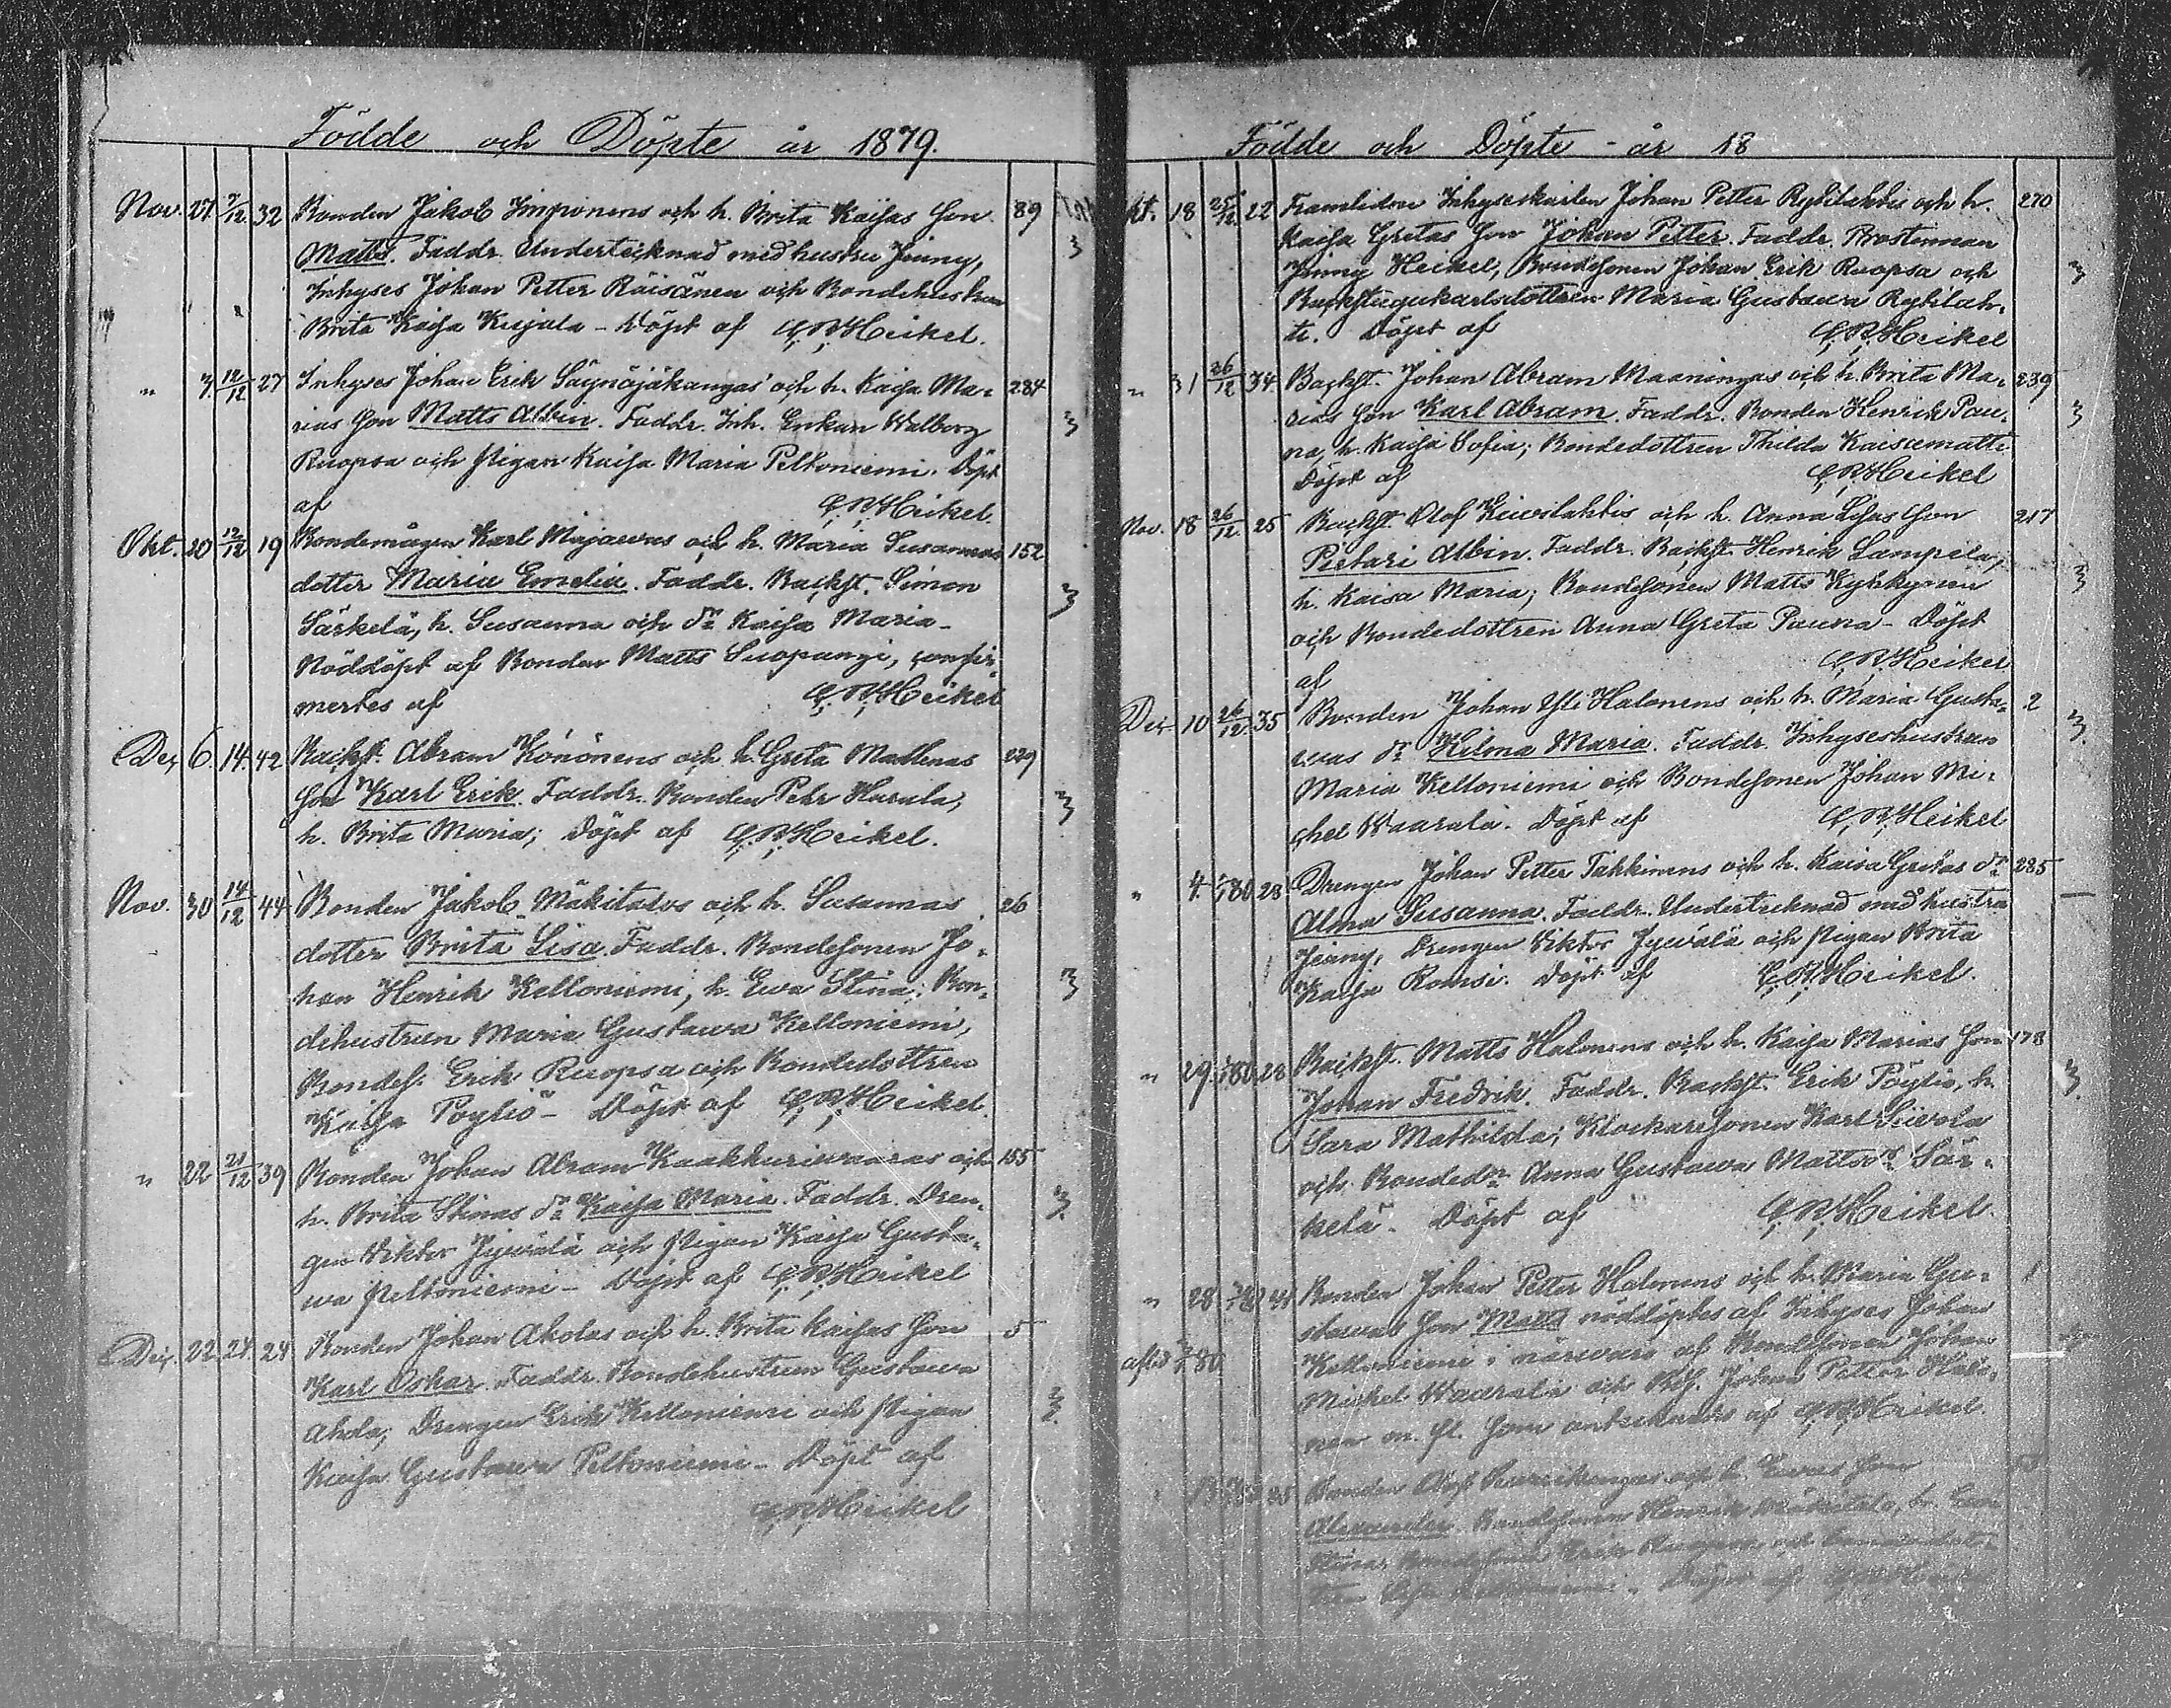 Födde och Döpte år 1879.
Nov. 27. 7/12 32 Bonden Jakob Imponens och h. Brita Kaisas Son 89
Matts. Faddr. Undertecknad med hustru Jenny,
Inhyses Johan Petter Räisänen och Bondehustrun
Brita Kaisa Kujala - Döpt af C.R.Heikel.
" 7. 12/12 27 Inhyses Johan Erik Säynäjäkangas' och h. Kaisa Ma- 284
rias Son Matts Albin. Faddr. Inh. Enkan Walborg
Ruopsa och Pigan Kaisa Maria Peltoniemi. Döpt
af C.R.Heikel.
Okt. 20 12/12 19 Bondemågen Karl Majawas och h. Maria Susannas 152
dotter Maria Emelia. Faddr. Backst. Simon
Särkelä, h. Susanna och dr Kaisa Maria -
Nöddöpt af Bonden Matts Suopanje, confir-
mertes af C.R.Heikel
Dec. 6. 14. 42 Backst. Abram Könönens och h. Greta Mathenas 229
Son Karl Erik. Faddr. Bonden Pehr Harala,
h. Brita Maria; Döpt af C.R.Heikel.
Nov. 30 14/12 44 Bonden Jakob Mäkitalos och h. Susannas 26
dotter Brita Lisa. Faddr. Bondesonen Jo-
han Henrik Kelloniemi, h. Ewa Stina; Bon-
dehustrun Maria Gustawa Kelloniemi,
Bondes. Erik Ruopsa och Bondedottren
Kaisa Pöyliö - Döpt af C.R.Heikel.
" 22 21/12 39 Bonden Johan Abram Kaakkuriwaaras och 155
h. Brita Stinas dr Kaisa Maria. Faddr. Dren-
gen Viktor Jywälä och Pigan Kaisa Gusta-
wa Peltoniemi - Döpt af C.R.Heikel
Dec. 22. 24. 24 Bonden Johan Aholas och h. Brita Kaisas Son 5
Karl Oskar. Faddr. Bondehustrun Gustawa
Ahola; Drengen Erik Kelloniemi och Pigan
Kaisa Gustawa Peltoniemi - Döpt af
C.R.Heikel
Födde och Döpte - år 18
kt. 18 25/12 22 Framlidne Inhyseskarlen Johan Petter Rytilahtis och h. 270
Kaisa Gretas Son Johan Petter. Faddr. Prostinnan
Jenny Heikel, Bondesonen Johan Erik Ruopsa och
Backstugukarlsdottren Maria Gustawa Rytilah-
ti. Döpt af C.R.Heikel
" 31 26/12 34 Backst. Johan Abram Maaningas och h. Brita Ma- 239
rias Son Karl Abram. Faddr. Bonden Henrik Pau-
na, h. Kaisa Sofia; Bondedottren Thilda Kaisamatti
Döpt af C.R.Heikel
Nov. 18 26/12 25 Backst. Olof Kiwilahtis och h. Anna Lisas Son 217
Pietari Albin. Faddr. Backst. Henrik Lampela,
h. Kaisa Maria; Bondesonen Matts Kyhkynen
och Bondedottren Anna Greta Pauna - Döpt
af C.R.Heikel
Dec. 10 26/12 35 Bonden Johan Yli Halonens och h. Maria Gusta- 2
was dr Hilma Maria. Faddr. Inhyseshustrun
Maria Kelloniemi och Bondesonen Johan Mi-
chel Waarala. Döpt af C.R.Heikel
" 4. 80 28 Drengen Johan Petter Tahkinens och h. Kaisa Gretas dr 285
Alma Susanna. Faddr. Undertecknad med hustru
Jenny, Drengen Viktor Jywälä och Pigan Brita
Kaisa Romsi. Döpt af C.R.Heikel.
" 29. 80 28 Backst. Matts Halonens och h. Kaisa Marias Son 178
Johan Fredrik. Faddr. Backst. Erik Pöyliö, h.
Sara Mathilda; Klockaresonen Karl Siivola
och Bondedr Anna Gustawa Mattsdr Sär-
kelä. Döpt af C.R.Heikel.
" 28 41 Bonden Johan Petter Halonens och h. Maria Gu- 1
stawas Son Matts nöddöptes af Inhyses Johan
Kelloniemi i närwaro af Bondesonen Johan
Michel Waarala och Johan Petter Halo-
nen m. fl. som antecknades af C.R.Heikel.
35 Bonden Olof och h. Ewas Son
Alexander. Bondesonen Henrik h. Ewa
Stina; Bondesonen Erik Ruopsa och
Döpt af C.R.Heikel